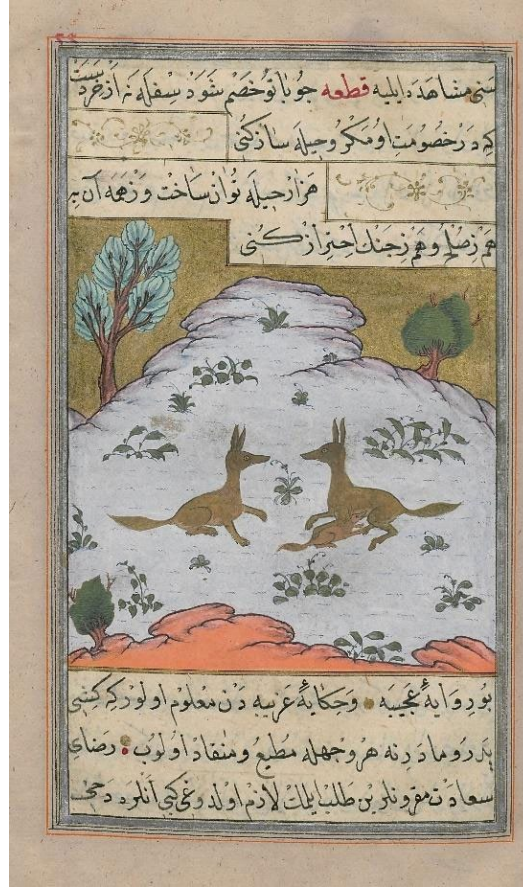 سنی مشاهده ایلیه قطعه چو با تو خصم شود سفله نه از خردست
که در خصومت او مکر و حیله ساز کنی
هزار حیله توان ساخت وز همه آن به
هم ز صلح و هم ز جنك احتراز کنی
بو روایهٔ عجیبه و حکایهٔ غریبه دن معلوم اولور که کشی
پدر و مادرنه هر وجهله مطیع و منقاد اولوب رضای
سعادت مقرونلرین طلب ایلمك لازم اولدوغی کبی آنلره دخی